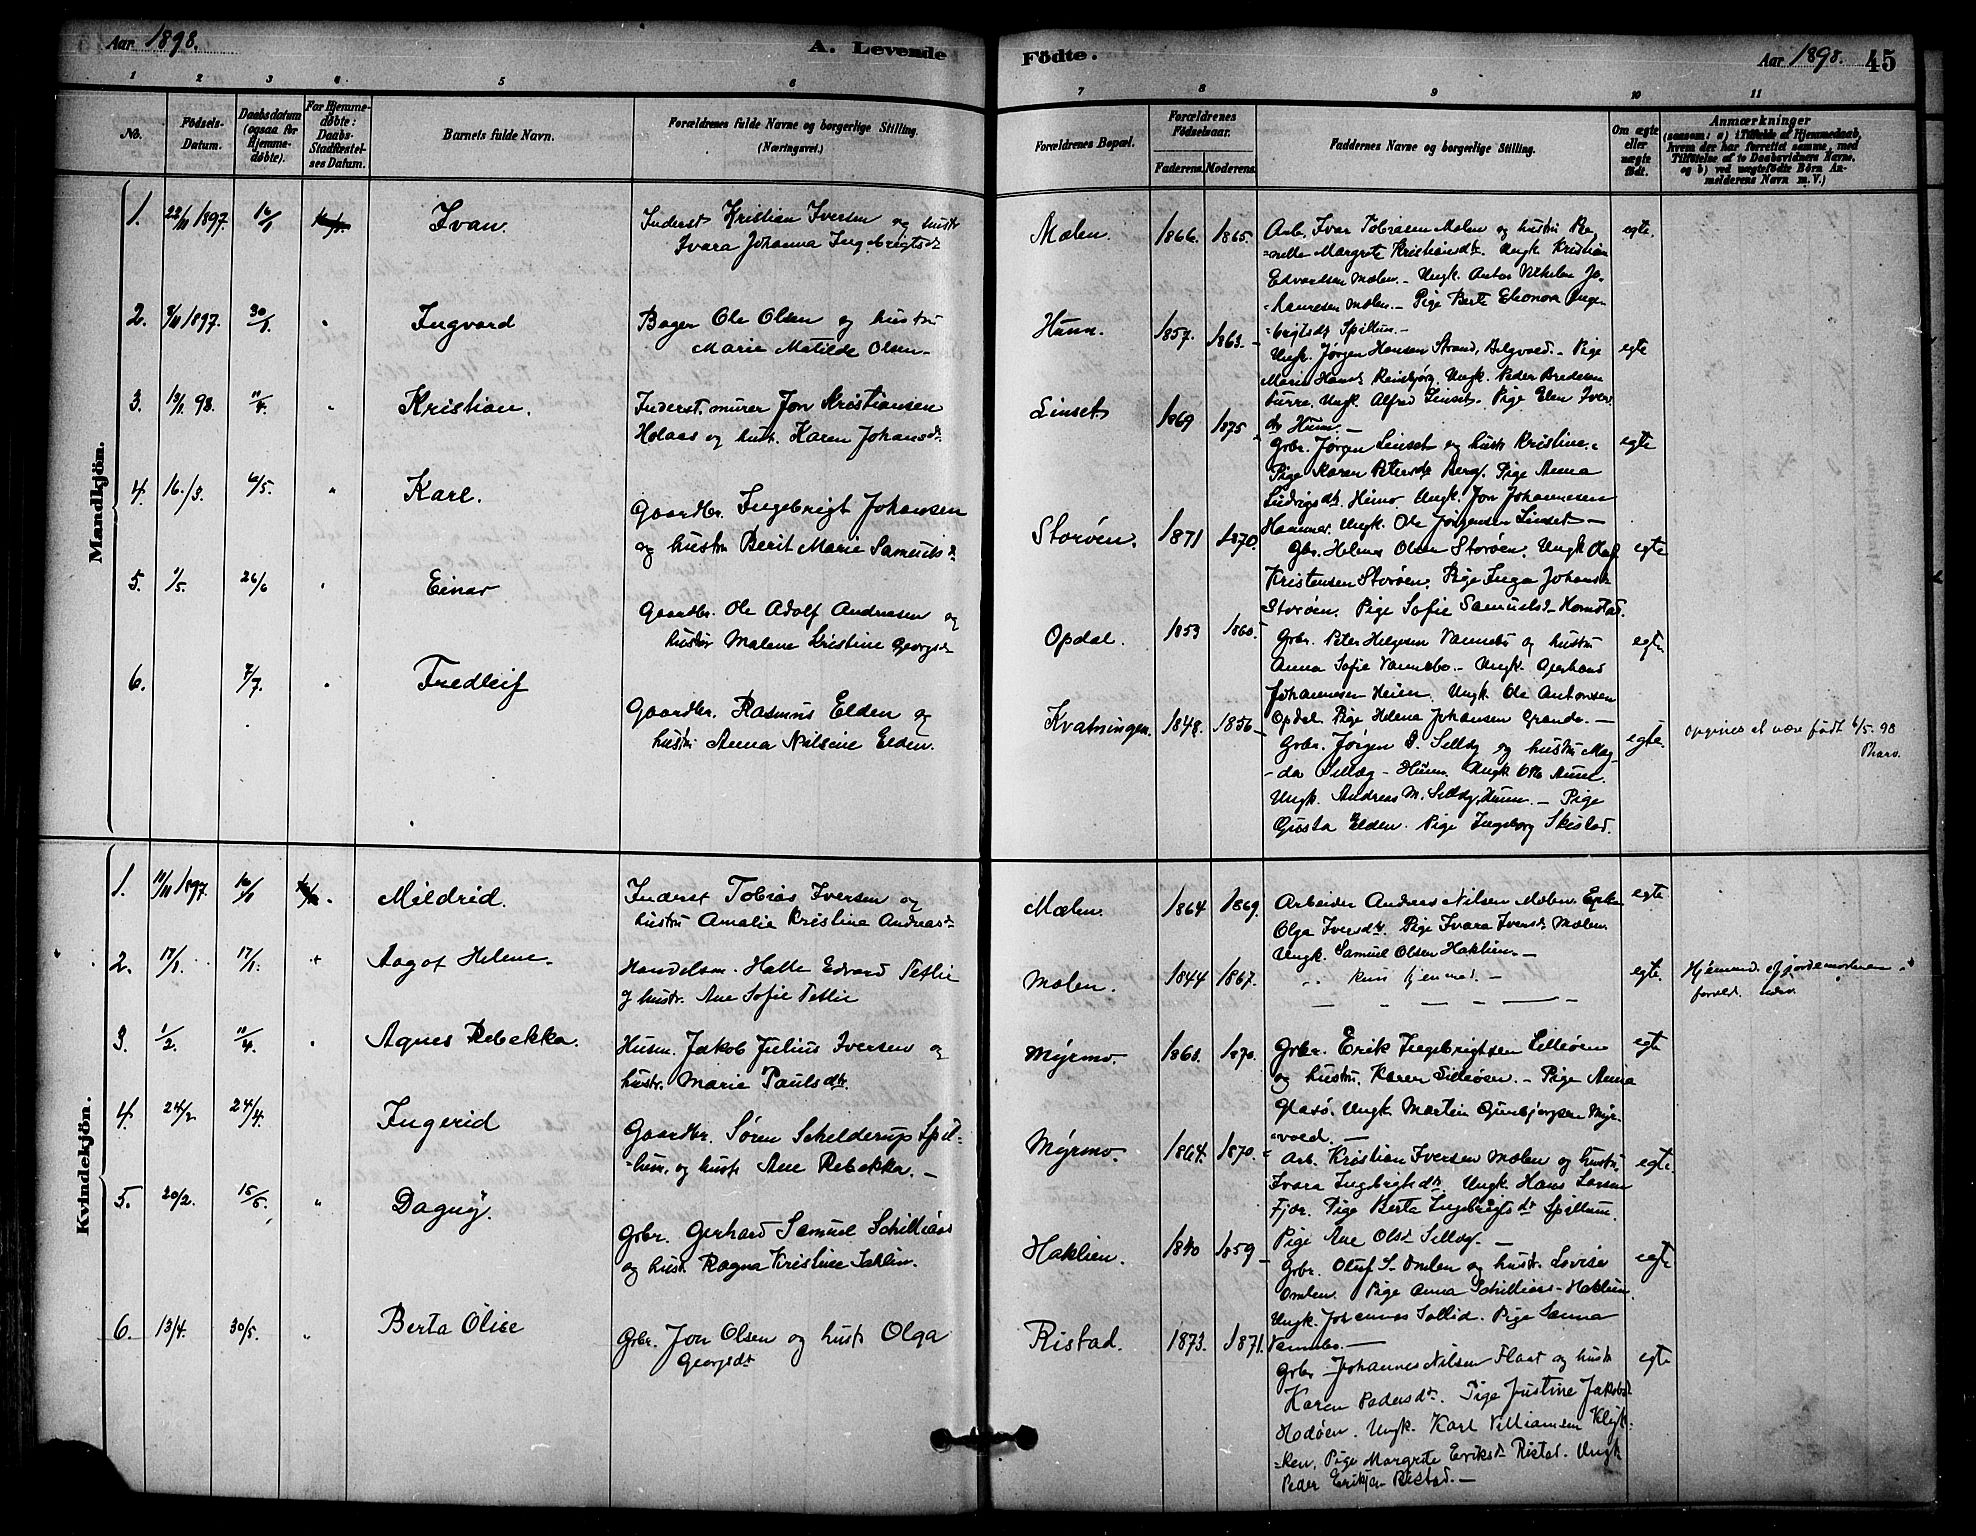 Aar 1898.
A. Levende
Födte.
Aar 1898. 45
1 2 3 4 5 6 7 8 9 10 11
No.
Födsels-Datum.
Daabsdatum (ogsaa for Hjemmedöbte).
For Hjemmedöbte: Daabs-Stadfæstelses Datum.
Barnets fulde Navn.
Forældrenes fulde Navne og borgerlige Stilling. (Næringsvei.)
Forældrenes Bopæl.
Forældrenes Födselsaar.
Faderens. Moderens.
Faddernes Navne og borgerlige Stilling.
Om ægte eller uægte födt.
Anmærkninger
(saasom: a) i Tilfælde af Hjemmedaab, hvem der har forrettet samme, med Tilföielse af to Daabsvidners Navne, og b) ved uægtefödte Börn Anmelderens Navn m. V.)
Mandkjön.
1. 22/11 1897. 16/1 Ivan.
Inderst Kristian Iversen og hustr
Ivara Johanna Ingebrigtsdt
Mælen. 1866. 1865. egte.
Arb. Ivar Tobiasen Mælen og hustru
Margrete Kristiansdt. Ungk. Kristian
Edvardsen Mælen. - Ungk. Anton Vilhelm Jo-
hannesen Mælen. - Pige Berte Eleonora Inge-
brigtsdt Spillum. -
2. 30/1 " Ingvard
Bager Ole Olsen og hustru
Marie Matilde Olsen -
Hunn. 1857. 1863. - egte
Ungk. Jørgen Hansen Strand, - Pige
Ungk. Peder Bredesen
Ungk. Alfred Linset. Pige Elen Ivers
dt Hunn. -
3. 98. 11/4. " Kristian.
Inderst, murer Jon Kristiansen
Holaas og hust. Karen Johansdt.
Linset. 1869 1875 egte
Grbr. Jørgen Linset og hustr Kristine.
Pige Karen Petersdt Berg. Pige Anna
Ludvigsdt Ungk. Jon Johannesen
Hammer. Ungk. Ole Jørgensen Linset -
4. 16./3. 6/5. " Karl.
Gaardbr. Ingebrigt Johansen
og hustru Berit Marie Samuelsd
Storøen. 1871 1870. egte
Gbr. Helmer Olsen Storøen. Ungk Olaf
Kristensen Storøen. Pige Inga Johansd
Storøen. Pige Sofie Samuelsd Homstad.
5. 26/6 " Einar
Gaardbr. Ole Adolf Andreasen og
hustru Malene Kristine Georgsd
Opdal. 1853 1860. egte.
Grbr. Peter Helgesen Vannebo og hustru
Anna Sofie Vannebo. - Ungk. Gerhard
Johannesen Heien. Ungk. Ole Antonsen
Opdal. Pige Helena Johansen Grande. -
6. 7/7. " Fredleif
Gaardbr. Rasmus Elden og
hustru Anna Nilsine Elden.
Kvatningen. 1848. 1856 - egte.
Grbr. Jørgen og hustru Mag-
da - Hunn. Ungk Otto Aune.
Ungk. Andreas M. Hunn. - Pige
Gusta Elden. Pige Ingeborg Skistad.
opgives at være født 6/5-98
Kvindekjön.
1. 11/11 1897. 16/1 Mildrid.
Inderst Tobias Iversen og
hustru Amalie Kristine Andreasdt
Mælen. 1864. 1869. egte
Arbeider Andreas Nilsen Mælen.
Olga Iversdt. Pige Ivara Iversd Mælen.
Ungk. Samuel Olsen Haklien. -
2. 17/1 17/1. Aagot Helene.
Handelsm. Halle Edvard Tetlie
og hustr. Ane Sofie Tetlie
Mælen. 1844 1867. egte.
kun hjemmed. -
Hjemmed. af jordemoderen
3. 1/2. 11/4. " Agnes Rebekka.
Husm. Jakob Julius Iversen og
hustr. Marie Paulsdtr.
Myrmo. 1860. 1870. egte
Grbr. Erik Ingebrigtsen Lilleøen
og hustru Karen Lilleøen. - Pige Anna
Glasø. Ungk. Martin Gunbjørgsen Myr-
vold. -
4. 24/2 24/4. Ingerid
Gaardbr. Søren Schelderup Spil-
lum, og hustr Ane Rebekka. -
Myrmo. 1864. 1870. egte.
Arb. Kristian Iversen Mælen og hustru
Ivara Ingebrigtsdt. Ungk. Hans Larsen
Fjær. Pige Berta Ingebrigtsdt Spillum.
Pige Ane Olsd -
5. 20/2. 15/5. " Dagny.
Grbr. Gerhard Samuel Schilliaas
og hust. Ragna Kristine
Haklien. 1840 1859 - egte
Grbr. Oluf S. Omlen og hustr. Lovise
Omlen. Pige Anna Schilliaas - Haklien.
Ungk. Johannes Sollid. Pige Sanna
Vannebo. -
6. 13/4. 30/5. " Berta Olise
Grbr. Jon Olsen og hustr Olga
Georgsdt
Ristad. 1873. 1871. egte
Grbr Johannes Nilsen Flaat og hustr
Karen Pedersdt. Pige Justine Jakobsd
Hodøen. Ungk. Karl Villiamsen Klyk-
ken, Pige Margrete Eriksd Ristad. Ungk
Peder Eriksen Ristad. -